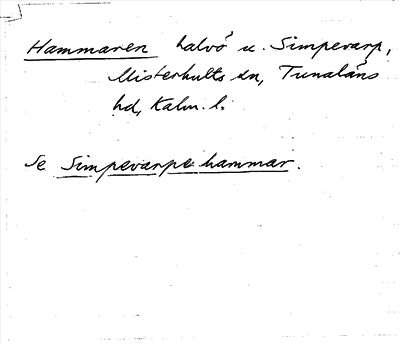 Hammaren halvö u. Simpevarp,
Misterhults sn, Tunaläns
hd, Kalm. l.
Se Simpevarpehammar.